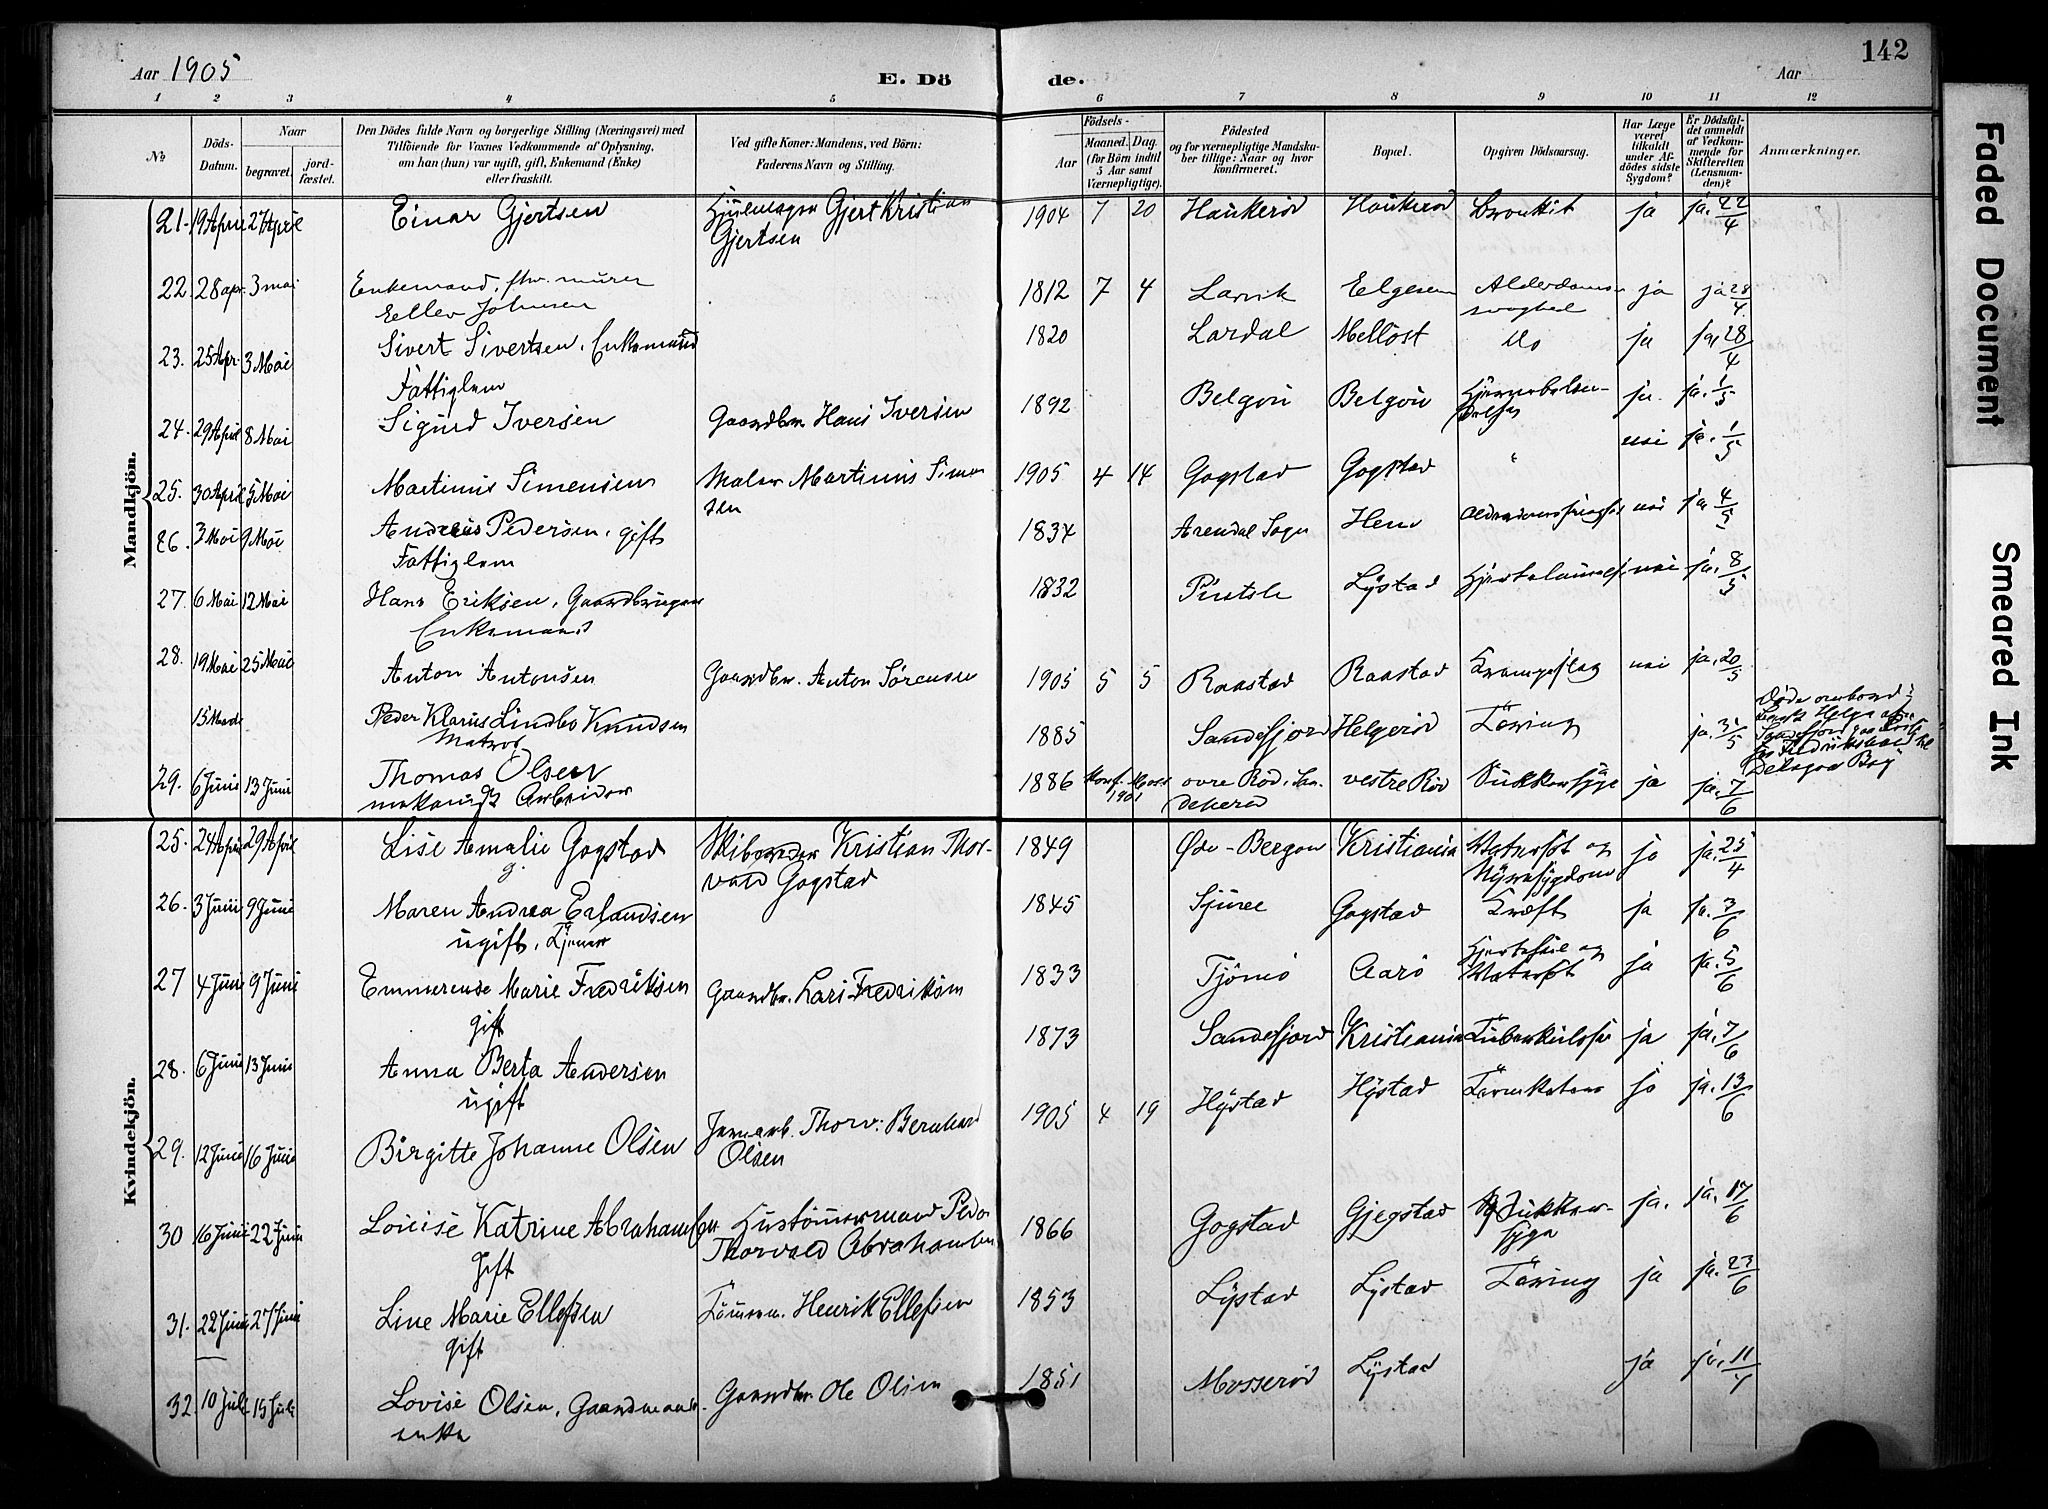 142
Aar 1905
E. Dö
de.
Aar
1 2 3 4 5 6 7 8 9 10 11 12
No
Döds-Datum.
Naar
begravet.
jord-fæstet.
Den Dödes fulde Navn og borgerlige Stilling (Næringsvei) med
Tilföiende for Voxnes Vedkommende af Oplysning,
om han (hun) var ugift, gift, Enkemand (Enke)
eller fraskilt.
Ved gifte Koner: Mandens, ved Börn:
Faderens Navn og Stilling.
Födsels-
Aar
Maaned. Dag.
(for Börn indtil
5 Aar samt
Værnepligtige).
Födested
og for værnepligtige Mandska-
ber tillige: Naar og hvor
konfirmeret.
Bopæl.
Opgiven Dödsaarsag.
Har Læge
været
tilkaldt
under Af-
dödes sidste
Sygdom?
Er Dödsfal-
det anmeldt
af Vedkom-
mende for
Skifteretten
(Lensman-
den)?
Anmærkninger.
Mandkjön.
21. 19 April 27 April Einar Gjertsen Gjert Kristian 1904 7 20 Haukerød Haukerød bronkit ja ja. 22/4
Gjertsen
22. 28 apr. 3 mai Enkemand, fhv. murer 1812 7 4 Larvik Elgesem Alderdoms- ja ja 28/4
Ellev Johnsen svaghed
23. 25 Apr. 3 Mai Sivert Sivertsen, Enkemand 1820 Lardal Melløst do ja ja, 28/4
Fattiglem
24. 29 April 8 Mai Sigurd Iversen Gaardbr. Hans Iversen 1892 Belgøu Belgøu ja. ja. 1/5
25. 30 April 5 Mai Martinius Simensen Maler Martinius Simen 1905 4 14 Gogstad Gogstad " nei ja. 1/5
sen
26. 3 Mai 9 Mai Anders Pedersen, gift 1834 Arendal Sogn Hem nei ja 4/5
Fattiglem
27. 6 Mai 12 Mai Hans Eriksen, Gaardbruger 1832 Lystad nei ja. 8/5
Enkemand
28. 19 Mai 25 Mai Anton Antonsen Gaardbr. Anton Sørensen 1905 5 5 Raastad Raastad Krampeslag nei ja. 20/5
15 Marts Peder Klarus Lindbo Knudsen 1885 Sandefjord Helgerød Tæring ja. 31/5
Matros
Døde ombord i
Helga af
Sandefjord
Fredrikshald til
Delagoa Bay
29. 6 Juni 13 Juni Thomas Olsen 1886 Konf. 1901 øvre Rød, San- vestre Rød Sukkersyge ja ja. 7/6
mekanisk Arbeider deherød
Kvindekjön.
25. 24 April 29 April Lise Amalie Gogstad Skibsreder Kristian Thor- 1849 Øde-Bergan Kristiania Vatersot og ja ja. 25/4
g. vald Gogstad Nyresygdom
26. 3 Juni 9 Juni Maren Andrea Erlandsen 1845 Gogstad Kræft ja ja. 3/6
ugift, Tjener
27 4 Juni 9 Juni Emmerense Marie Fredriksen Gaardbr. Lars Fredriksen 1833 Tjömö Aarö Hjertefeil og Vatersot ja ja. 5/6
gift
28. 6 Juni 13 Juni Anna Berta Andersen 1873 Sandefjord Kristiania Tuberkulose ja ja. 7/6
ugift
29. 12 Juni 16 Juni Birgitte Johanne Olsen Jernarb. Thorv: Bernhard 1905 4 19 Hystad Hystad Tarmkatar ja ja. 13/6
Olsen
30 16 Juni 22 Juni Louise Katrine Abrahamsen Hustømmermand Peder 1866 Gogstad Gjegstad Sukker- ja. ja. 17/6
Gift Thorvald Abrahamsen syge
31. 22 Juni 27 Juni Line Marie Ellefsen Tømmerm. Henrik Ellefsen 1853 Lystad Lystad Tæring ja ja. 23/6
gift
32 10 Juli 15 Juli Lovise Olsen, Gaardmands- Gaardbr. Ole Olsen 1851 Mosserød Lystad ja ja. 11/7
enke
Faded Document
Smeared Ink